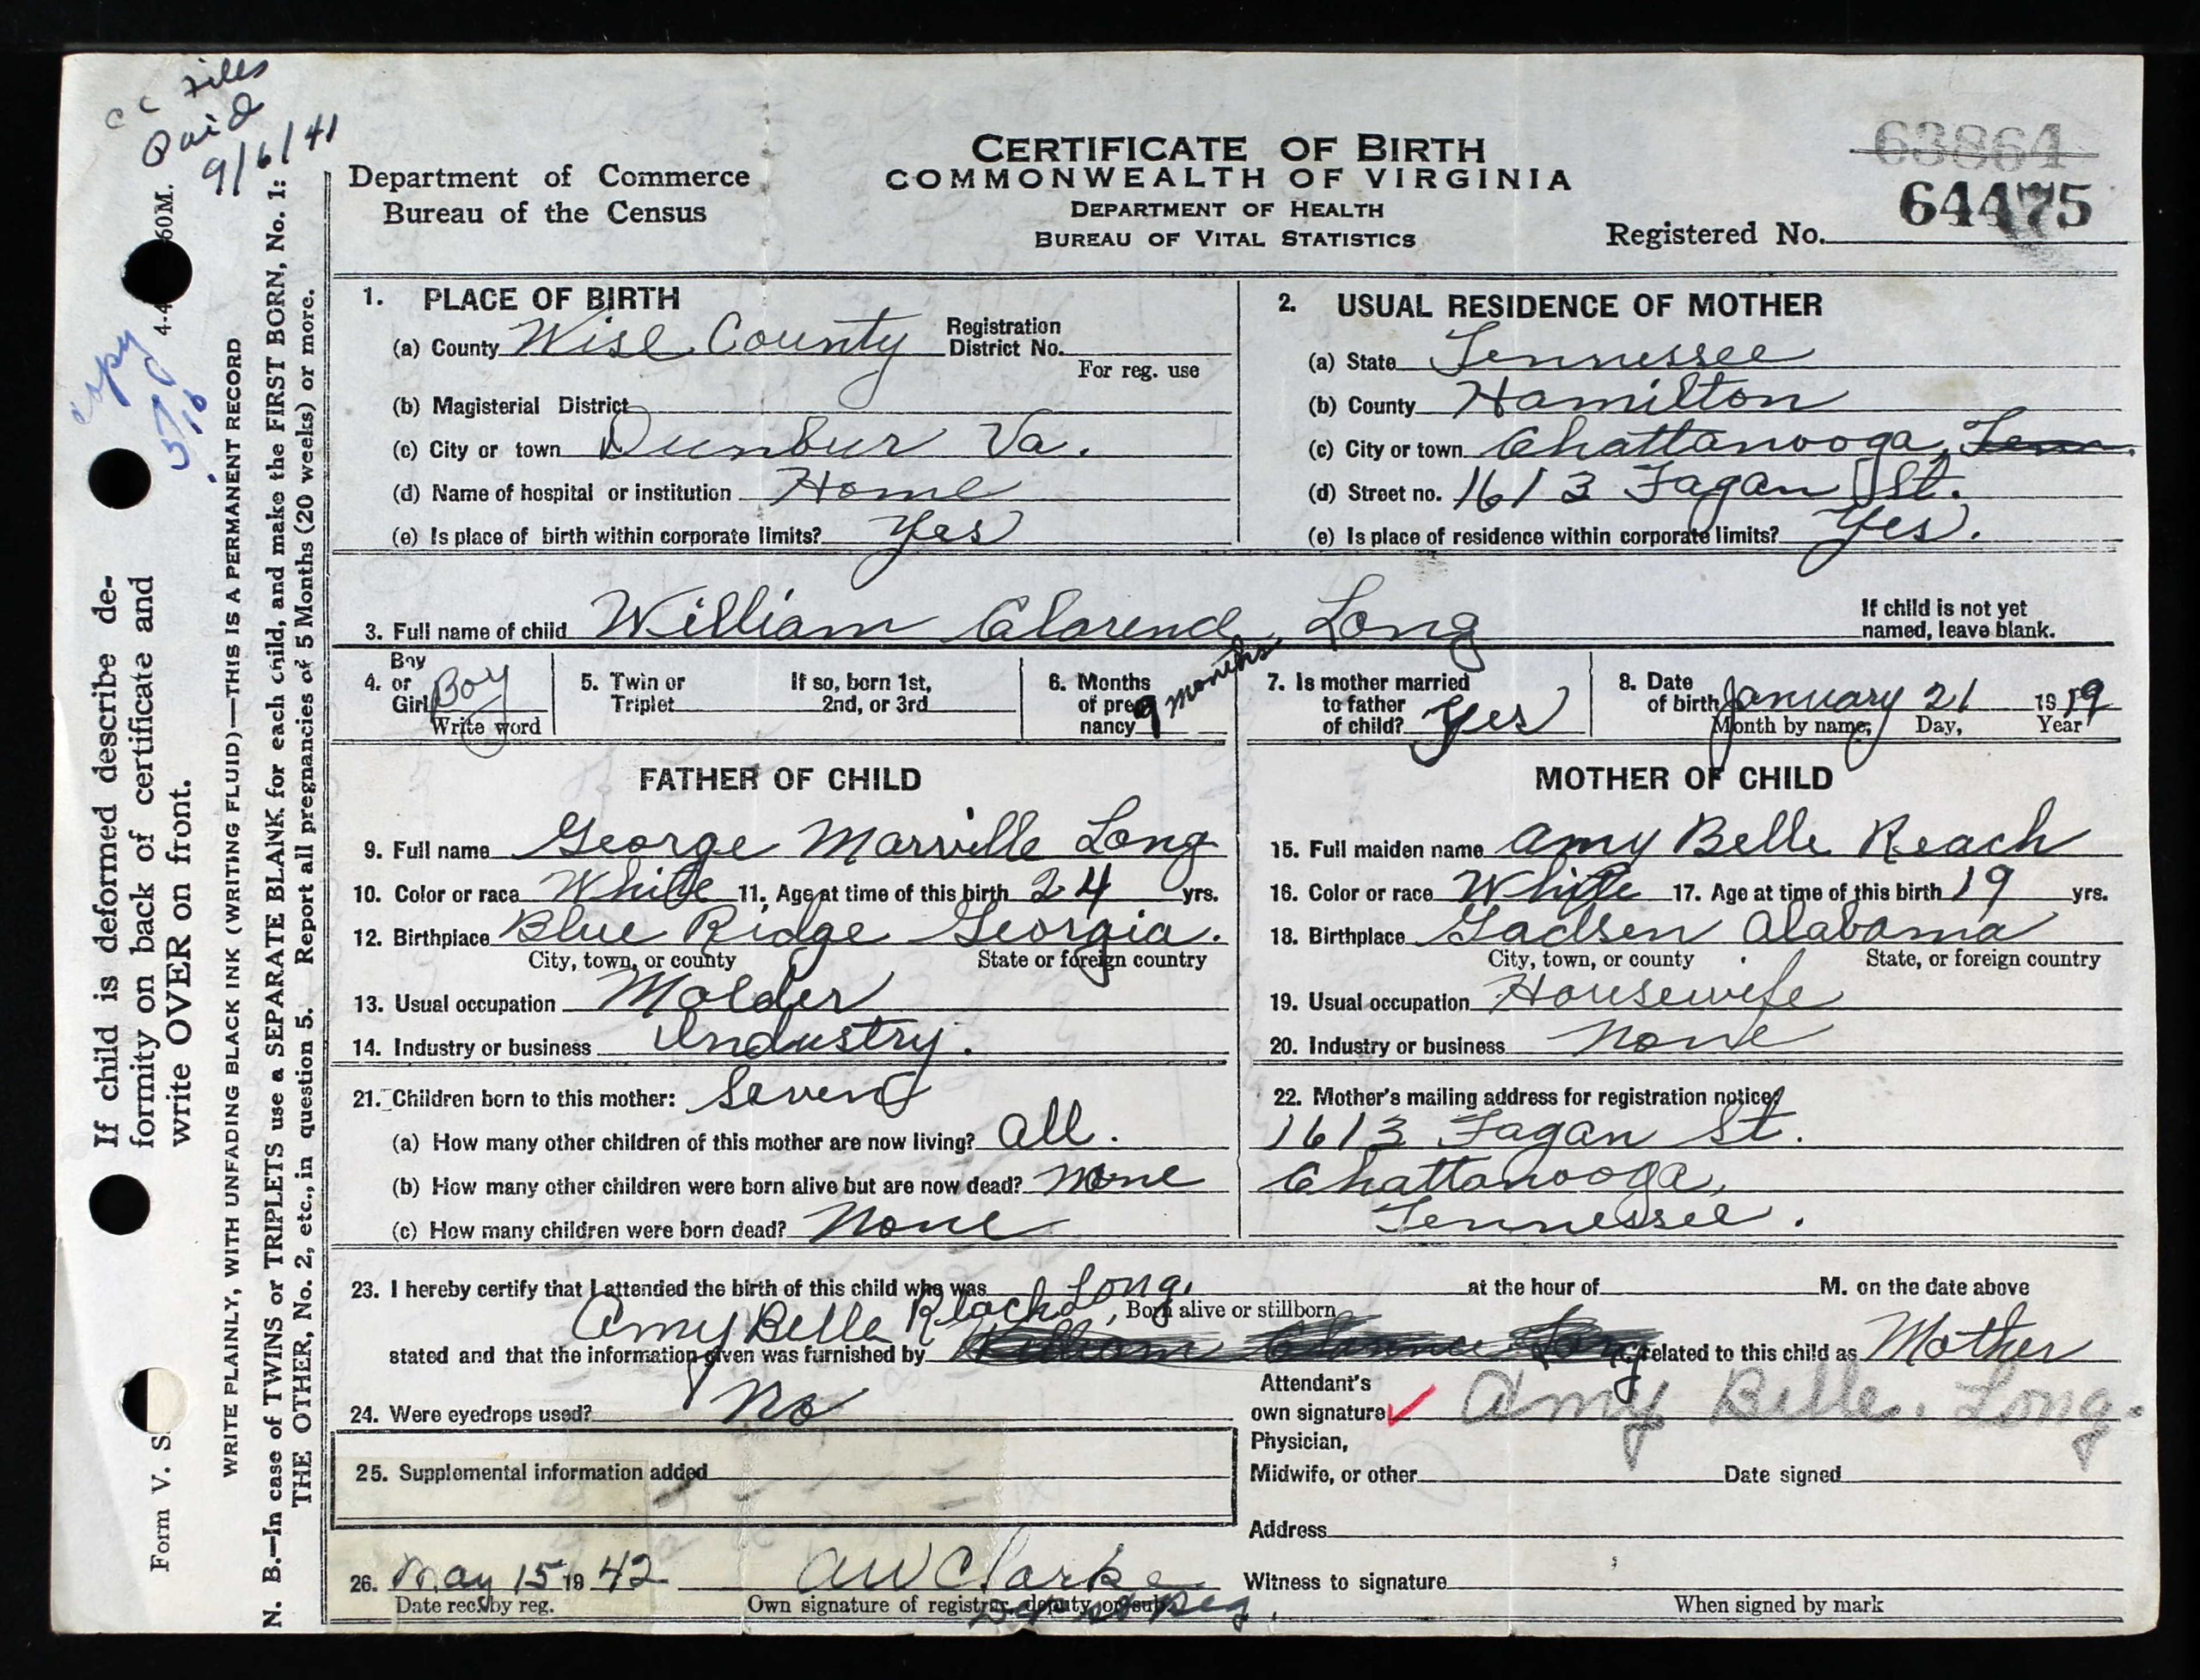 cc files
Paid
9/6/41
Copy
CERTIFICATE OF BIRTH
COMMONWEALTH OF VIRGINIA
DEPARTMENT OF HEALTH
BUREAU OF VITAL STATISTICS
Department of Commerce
Bureau of the Census
63864
64475
Registered No.
Form V. S.
60M.
If child is deformed describe de-
formity on back of certificate and
write OVER on front.
WRITE PLAINLY, WITH UNFADING BLACK INK (WRITING FLUID)—THIS IS A PERMANENT RECORD
N. B.—In case of TWINS or TRIPLETS use a SEPARATE BLANK for each child, and make the FIRST BORN, No. 1:
THE OTHER, No. 2, etc., in question 5. Report all pregnancies of 5 Months (20 weeks) or more.
1. PLACE OF BIRTH
(a) County Wise County Registration District No.
For reg. use
(b) Magisterial District
(c) City or town Dunbur Va.
(d) Name of hospital or institution Home
(e) Is place of birth within corporate limits? Yes
2. USUAL RESIDENCE OF MOTHER
(a) State Tennessee
(b) County Hamilton
(c) City or town Chattanooga, Tenn.
(d) Street no. 1613 Fagan St.
(e) Is place of residence within corporate limits? Yes.
3. Full name of child William Clarence Long If child is not yet named, leave blank.
4. Boy or Girl Boy Write word
5. Twin or Triplet If so, born 1st, 2nd, or 3rd
6. Months of pregnancy 9 months
7. Is mother married to father of child? Yes
8. Date of birth January 21 1919
Month by name, Day, Year
FATHER OF CHILD
9. Full name George Marville Long
10. Color or race White 11. Age at time of this birth 24 yrs.
12. Birthplace Blue Ridge Georgia.
City, town, or county State or foreign country
13. Usual occupation Molder
14. Industry or business Industry.
MOTHER OF CHILD
15. Full maiden name Amy Belle Reach
16. Color or race White 17. Age at time of this birth 19 yrs.
18. Birthplace Gadsen Alabama
City, town, or county State, or foreign country
19. Usual occupation Housewife
20. Industry or business None
21. Children born to this mother: Seven
(a) How many other children of this mother are now living? All.
(b) How many other children were born alive but are now dead? None
(c) How many children were born dead? None
22. Mother's mailing address for registration notice:
1613 Fagan St.
Chattanooga,
Tennessee.
23. I hereby certify that I attended the birth of this child who was at the hour of M. on the date above
Born alive or stillborn
Amy Belle Reach Long,
stated and that the information given was furnished by William Clarence Long related to this child as Mother
24. Were eyedrops used? No
Attendant's own signature Amy Belle. Long.
Physician,
Midwife, or other Date signed
25. Supplemental information added
Address
26. May 15 1942 AW Clarke
Date rec. by reg. Own signature of registrar, deputy, or sub.
Witness to signature
When signed by mark